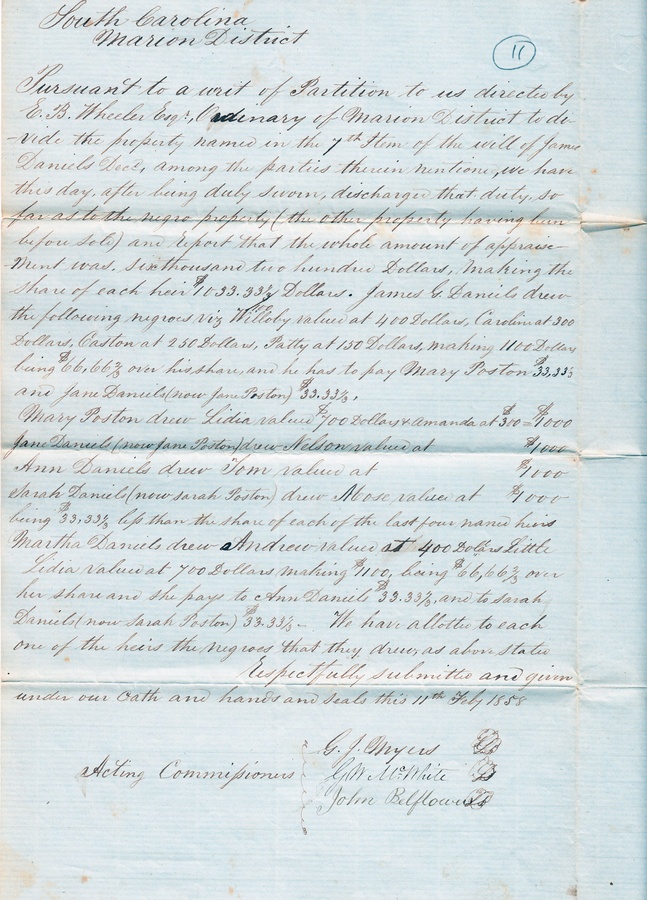 South Carolina
Marion District
11
Pursuant to a writ of Partition to us directed by
E. B. Wheeler Esqr, Ordenary of Marion District to de-
-vide the property named in the 7th Item of the will of James
Daniels Decd, among the parties therein mentione, we have
this day, after being duly sworn, discharged that duty, so
far as to the negro property (the other property having been
before sold) and report that the whole amount of appraise-
ment was. Six thousand two hundred Dollars, making the
share of each heir $1033.33⅓ Dollars. James G. Daniels drew
the following negroes viz Willoby valued at 400 Dollars, Carolin at 300
Dollars, Easton at 250 Dollars, Patty at 150 Dollars, making 1100 Dollars
being $66,66⅔ over his share, and he has to pay Mary Poston $33,33⅓
and Jane Daniels (now Jane Poston) $33.33⅓,
Mary Poston drew Lidia valued $700 Dollars & Amanda at $300 = $1000
Jane Daniels (now Jane Poston) drew Nelson valued at $1000
Ann Daniels drew Tom valued at $1000
Sarah Daniels (now Sarah Poston) drew Abose, valued at $1000
being $33,33⅓ less than the share of each of the last four named heirs
Martha Daniels drew Andrew valued at 400 Dollars Little
Lidia valued at 700 Dollars making $1100, being $66,66⅔ over
her share and she pays to Ann Daniels $33.33⅓, and to Sarah
Daniels (now Sarah Poston) $33.33⅓ - We have allotted to each
one of the heirs the negroes that they drew, as above stated
Respectfully submitted and given
under our Oath and hands and seals this 11th Feby 1858
G. J. Myers
Acting Commissioners G W McWhite
John Belflowers